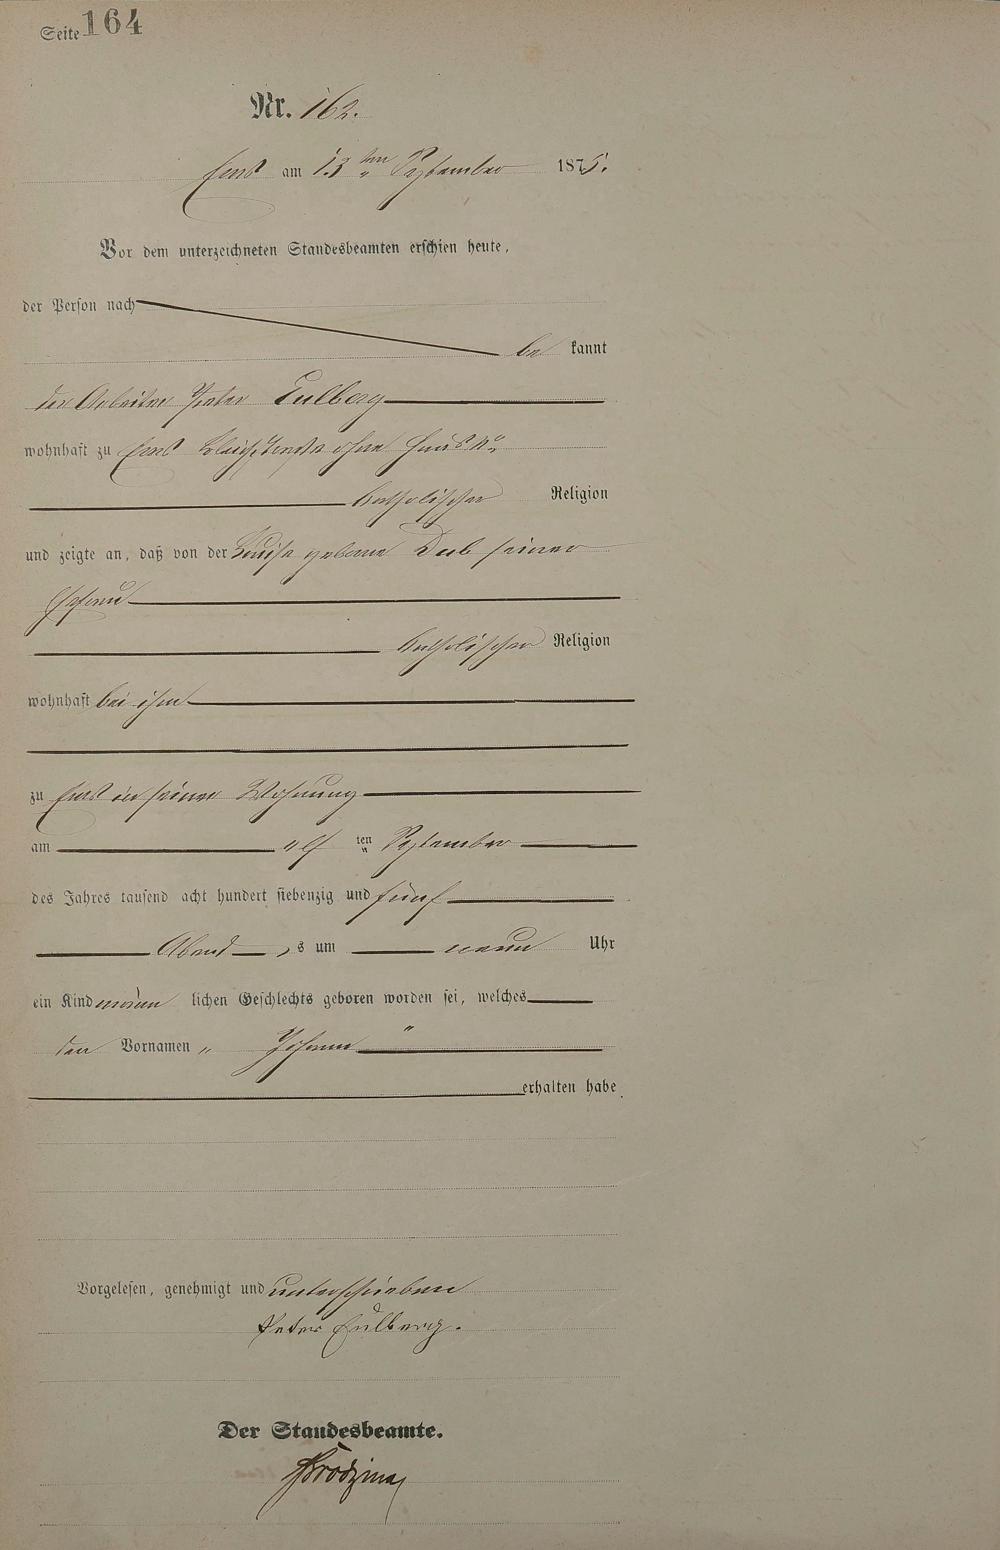 Seite 164
Nr. 162.
Ems am 13 ten September 1875.
Vor dem unterzeichneten Standesbeamten erschien heute,
der Person nach
be kannt
der Arbeiter Peter Eulberg
wohnhaft zu Ems ohne Haus No
katholischer Religion
und zeigte an, daß von der Louise geborne Dub seiner
Ehefrau
katholischer Religion
wohnhaft bei ihm
zu Ems in seiner Wohnung
am elf ten September
des Jahres tausend acht hundert siebenzig und fünf
Abend s um neun Uhr
ein Kind männ lichen Geschlechts geboren worden sei, welches
den Vornamen „ Johann "
erhalten habe
Vorgelesen, genehmigt und unterschrieben
Peter Eulberg.
Der Standesbeamte.